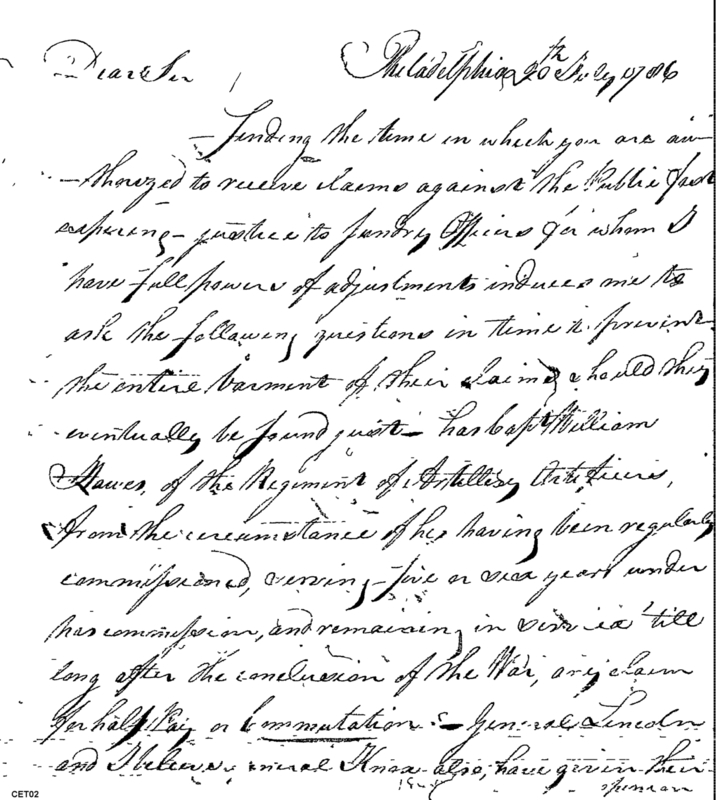 Dear Sir, Philadelphia 20th July 1786
— Finding the time in which you are au-
-thorized to receive claims against the Public fast
expireing — justice to sundry Officers for whom I
have full powers of adjustments induces me to
ask the following questions in time to prevent
the entire barment of their claims, should they
eventually be found just — has Capt William
Hawes, of the Regiment of Artillery Artificers,
from the circumstance of his having been regularly
commissioned, serving five or six years under
his commission, and remaining in service 'till
long after the conclusion of the War, any claim
for half Pay or Commutation :— General Lincoln
and I believe General Knox also, have given their
opinion
CET02